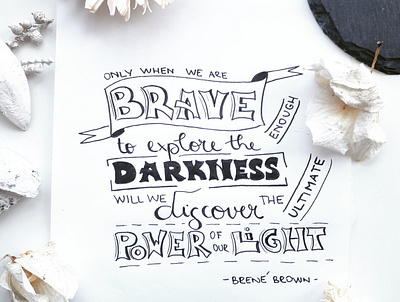 ONLY WHEN WE ARE
BRAVE ENOUGH
to explore the
DARKNESS
WILL WE discover THE ULTIMATE
POWER OF OUR LIGHT
- BRENÉ BROWN -